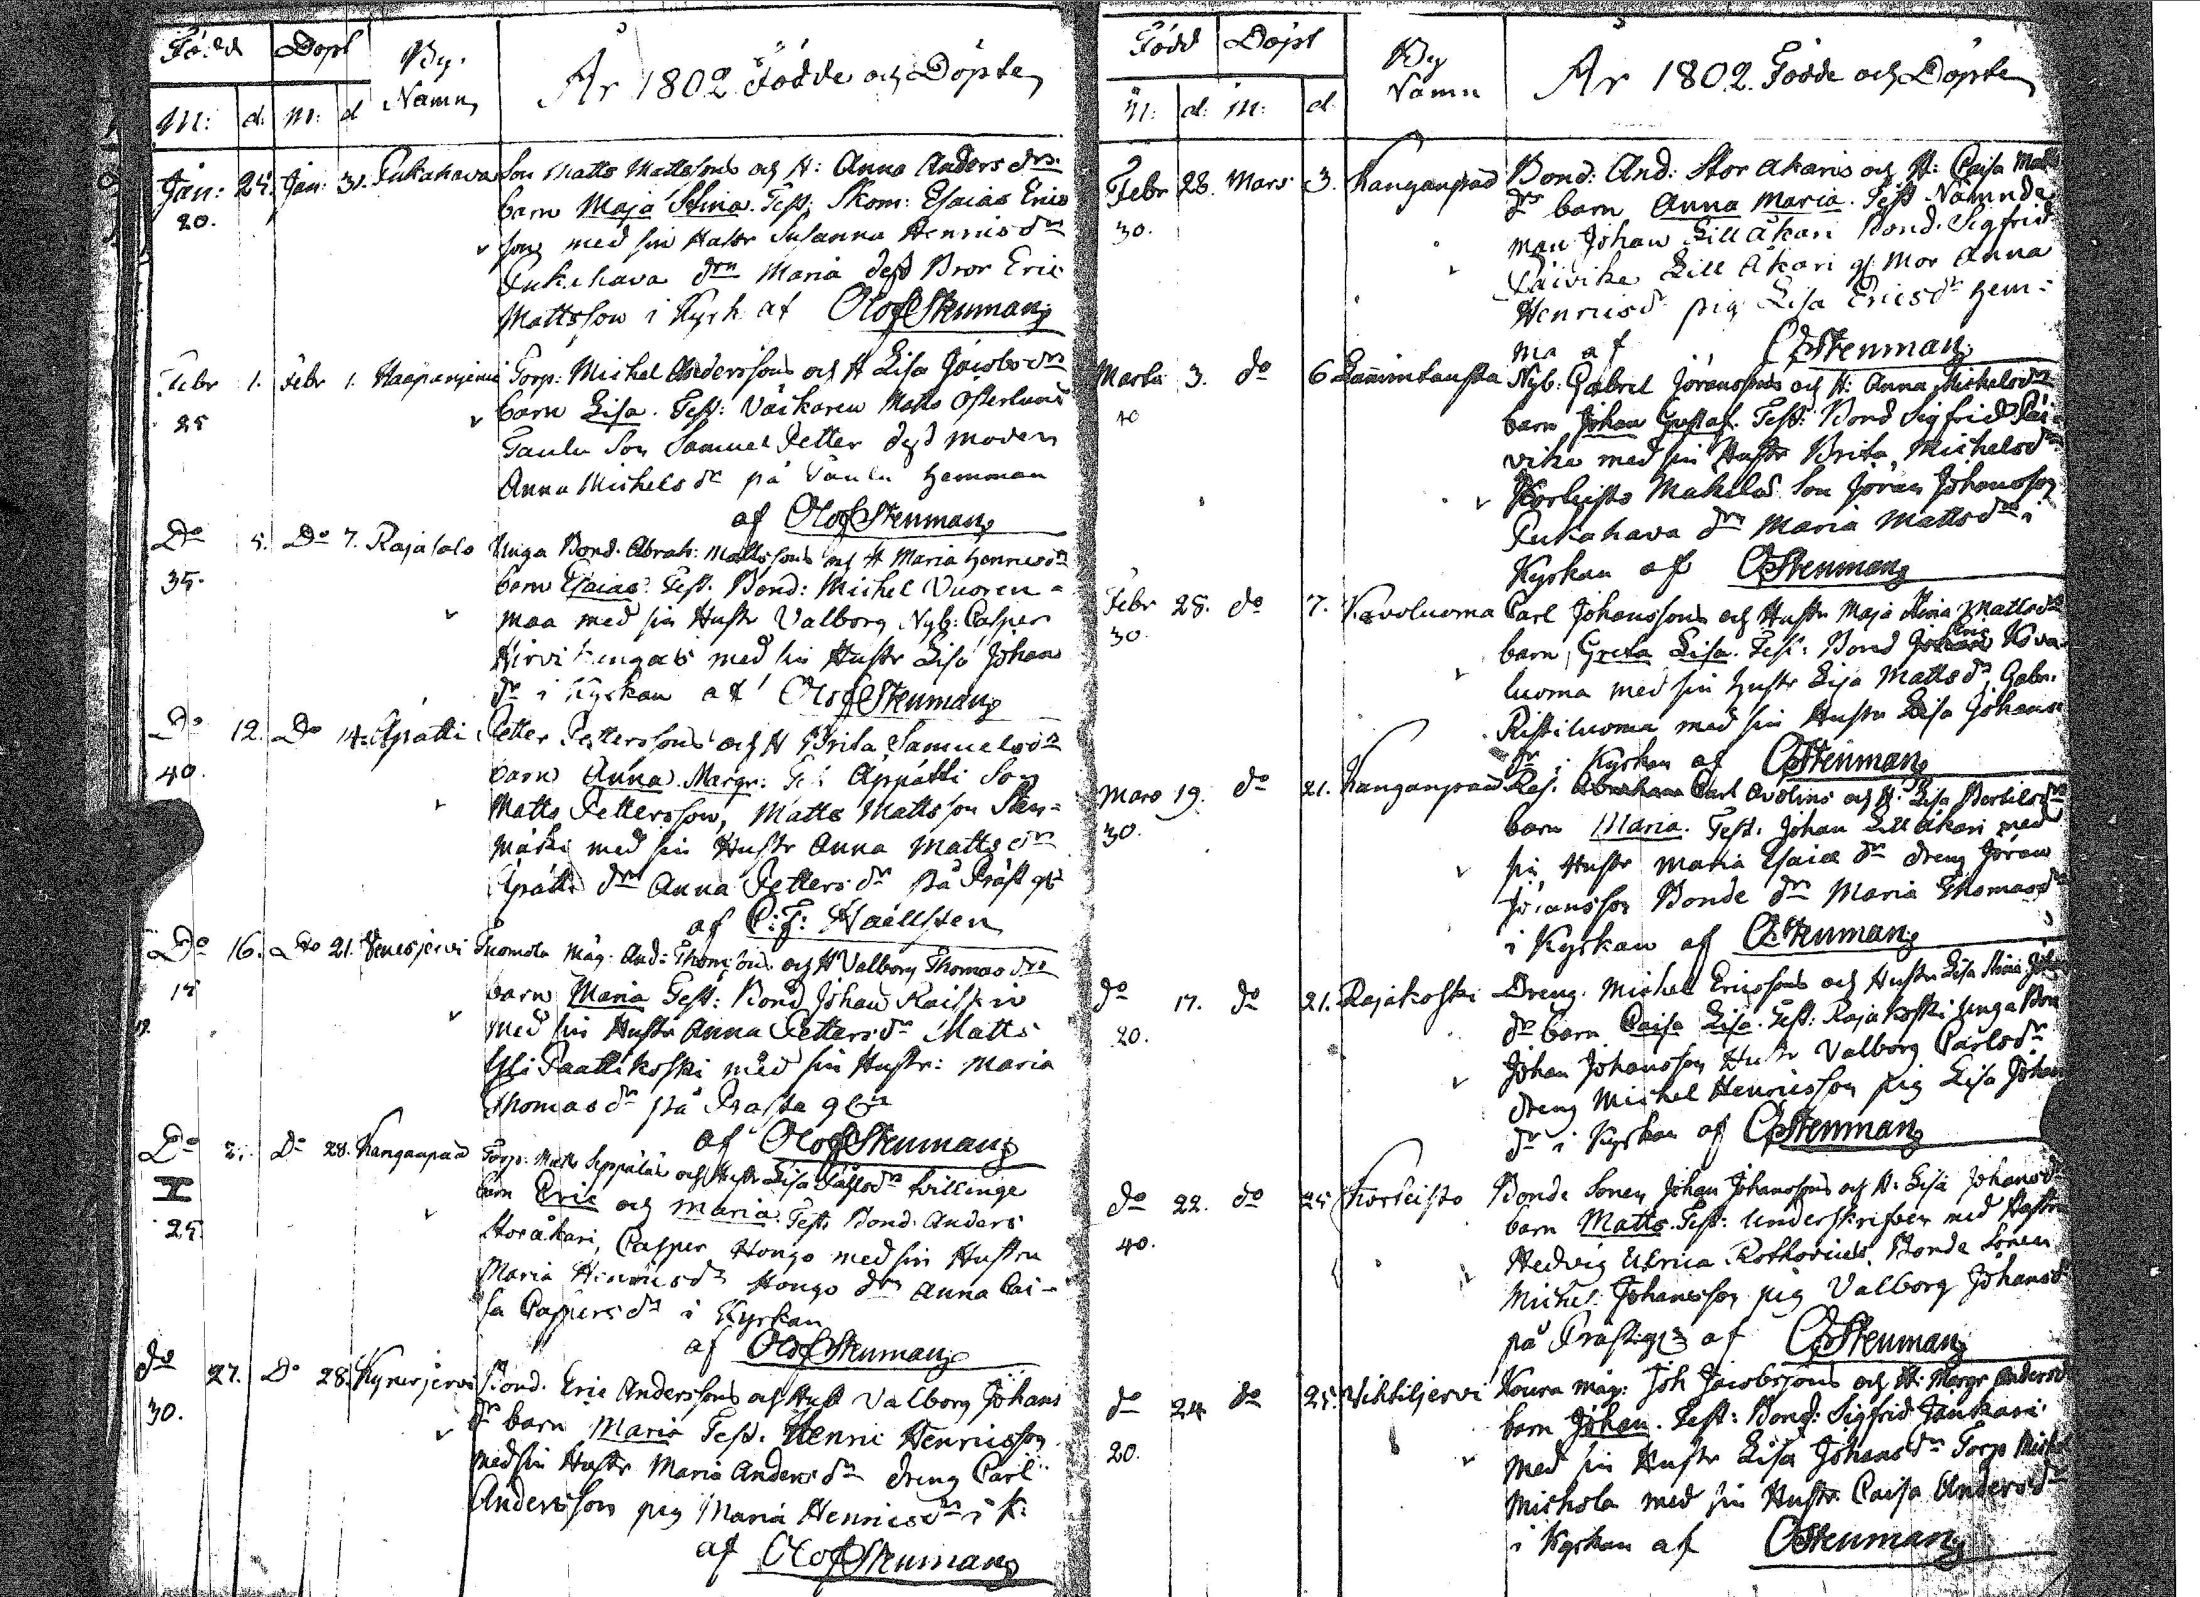 Född Döpt By. Namn År 1802 Födde och Döpte
M: d: m: d
Jan: 24. Jan: 31. Pukahava Son Matts Mattssons och H: Anna Anders drs
20. barn Maja Stina. Test: Skom: Esaias Erics
son med sin Hustr Susanna Henrics dr
Pukahava drn Maria dess Bror Eric
Mattsson i Kyrk af Olof Stenman
Febr 1. Febr 1. Haapanjemi Torp: Michel Anderssons och H Lisa Jacobs dr
25 barn Lisa. Test: Väckaren Matts Österlund
Taulu Son Samuel Petter dess moder
Anna Michels dr på Taulu hemman
af Olof Stenman
Do 5. Do 7. Rajasalo Unga Bond. Abrah: Mattssons och H Maria Henricsdr
35. barn Esaias. Test. Bond: Michel Vuoren-
maa med sin Hustr Valborg Nyb: Casper
Hirvikangas med sin Hustr Lisa Johans
dr i Kyrkan af Olof Stenman
Do 12. Do 14. Äpätti Petter Petterssons och H Brita Samuelsdr
40. barn Anna Margr: Äppätti Son
Matts Pettersson, Matts Mattsson Sten-
mäki med sin Hustr Anna Matts dr
Äpätti drn Anna Petters dr på Präst g
af C: F: Haellsten
Do 16. Do 21. Venesjervi Tuomola Måg. And: Thomssons och H Valborg Thomas dr
15 barn Maria Test: Bond Johan
med sin Hustr Anna Petters dr Matts
Yli Paattikoski med sin Hustr: Maria
Thomas dr på Prästa g
af Olof Stenman
Do Do 28. Kanganpää Torp: Matts Seppäläs och Hustr Lisa
barn Eric och Maria. Test. Bond. Anders tvillinge
25. Storåkari, Casper Hongo med sin Hustru
Maria Henricsdr Hongo drn Anna Cai-
sa Caspers dr i Kyrkan
af Olof Stenman
do 27. Do 28. Kynesjervi Bond. Eric Anderssons och Hust Valborg Johans
30. dr barn Maria Test. Henric Henricsson
med sin Hustr Maria Anders dr dreng Carl
Andersson pig Maria Henricsdr i K:
af Olof Stenman
Född Döpt By Namn År 1802. Födde och Döpte
M: d: M: d
Febr 28. Mars 3. Kanganpää Bond: And: Stor Akaris och H: Caisa Matts
30. dr barn Anna Maria. Test Nämnde
man Johan Lill Åkari Bond. Sigfrid
Päivike Lill Åkari g: Mor Anna
Henricsdr pig Lisa Ericsdr hem-
ma af OStenman
Martii 3. do 6 Lammintausta Nyb: Gabriel Jöranssons och H: Anna Michelsdr
40 barn Johan Gustaf. Test: Bond Sigfrid Päi-
vike med sin Hustr Brita Michelsdr
Korteisto Makelas Son Jöran Johansson
Pukahava drn Maria Mattsdr i
Kyrkan af OStenman
Febr 28. do 7. Kavoluoma Carl Johanssons och Hustr Maja Stina Mattsdr
30. barn Greta Lisa. Test: Bond Eric Kova-
luoma med sin Hustr Lisa Mattsdr, Gabr.
Ristiluoma med sin Hustr Lisa Johans
dr i Kyrkan af OStenman
Mars 19. do 21. Kanganpää Carl Avelins och H. Lisa Bertilsdr
30. barn Maria. Test. Johan Lill Åkari med
sin Hustr Maria Esaiæ dr dreng Jöran
Jöransson Bonde drn Maria Thomasdr
i Kyrkan af OStenman
do 17. do 21. Rajakoski Dreng. Michel Ericssons och Hustr Lisa Stina Johans
20. dr barn Caisa Lisa. Test: Rajakoski unga Bon
Johan Johansson Hustr Valborg Carlsdr
dreng Michel Henricsson pig Lisa Johans
dr i Kyrkan af OStenman
do 22. do 25 Korteisto Bonde Sonen Johan Johanssons och H: Lisa Johansdr
40. barn Matts. Test: Underskrifven med Hustru
Hedvig Ulrica Rothovius. Bonde Sonen
Michel Johansson pig Valborg Johansd
på Prästg af OStenman
do 24 do 25. Vihtiljervi Koura måg: Joh Jacobssons och H: Margr Andersd
20. barn Johan. Test: Bond: Sigfrid Jankari
med sin Hustr Lisa Johans dr Torp Michel
Michola med sin Hustr Caisa Anders dr
i Kyrkan af OStenman